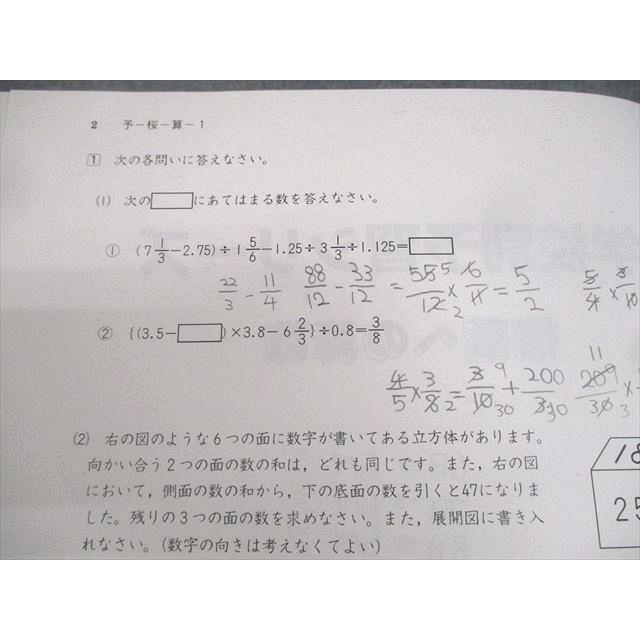 2 予-桜-算-1
1 次の各問いに答えなさい。
(1) 次の□にあてはまる数を答えなさい。
① (7 1/3 -2.75)÷1 5/6 -1.25÷3 1/3 ÷1.125=□
22/3 - 11/4 88/12 - 33/12 = 55/12 × 6/11 = 5/2
② {(3.5-□)×3.8-6 2/3}÷0.8= 3/8
4/5 × 3/8 = 3/10 + 20/3 209/30
(2) 右の図のような6つの面に数字が書いてある立方体があります。
向かい合う2つの面の数の和は，どれも同じです。また，右の図
において，側面の数の和から，下の底面の数を引くと47になりま
した。残りの3つの面の数を求めなさい。また，展開図に書き入
れなさい。(数字の向きは考えなくてよい)
18
25